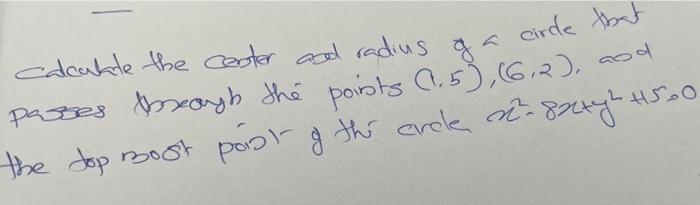 Calculate the center and radius of a circle that
passes through the points (1,5), (6,2), and
the top most point of the circle x² - 8x + y² + 15 = 0